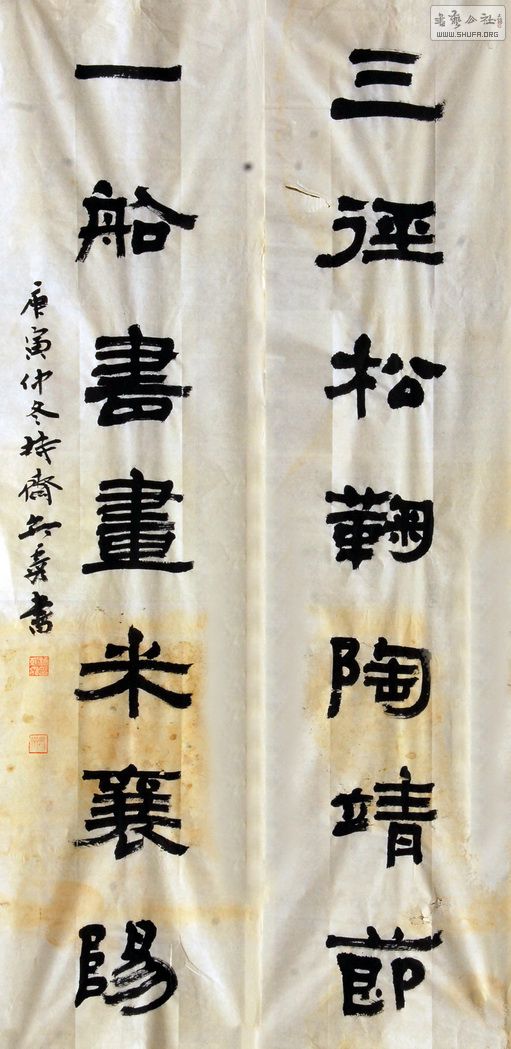 三徑松鞠陶靖節
一船書畫米襄陽
庚寅仲冬時齋
書
書藝公社
WWW.SHUFA.ORG